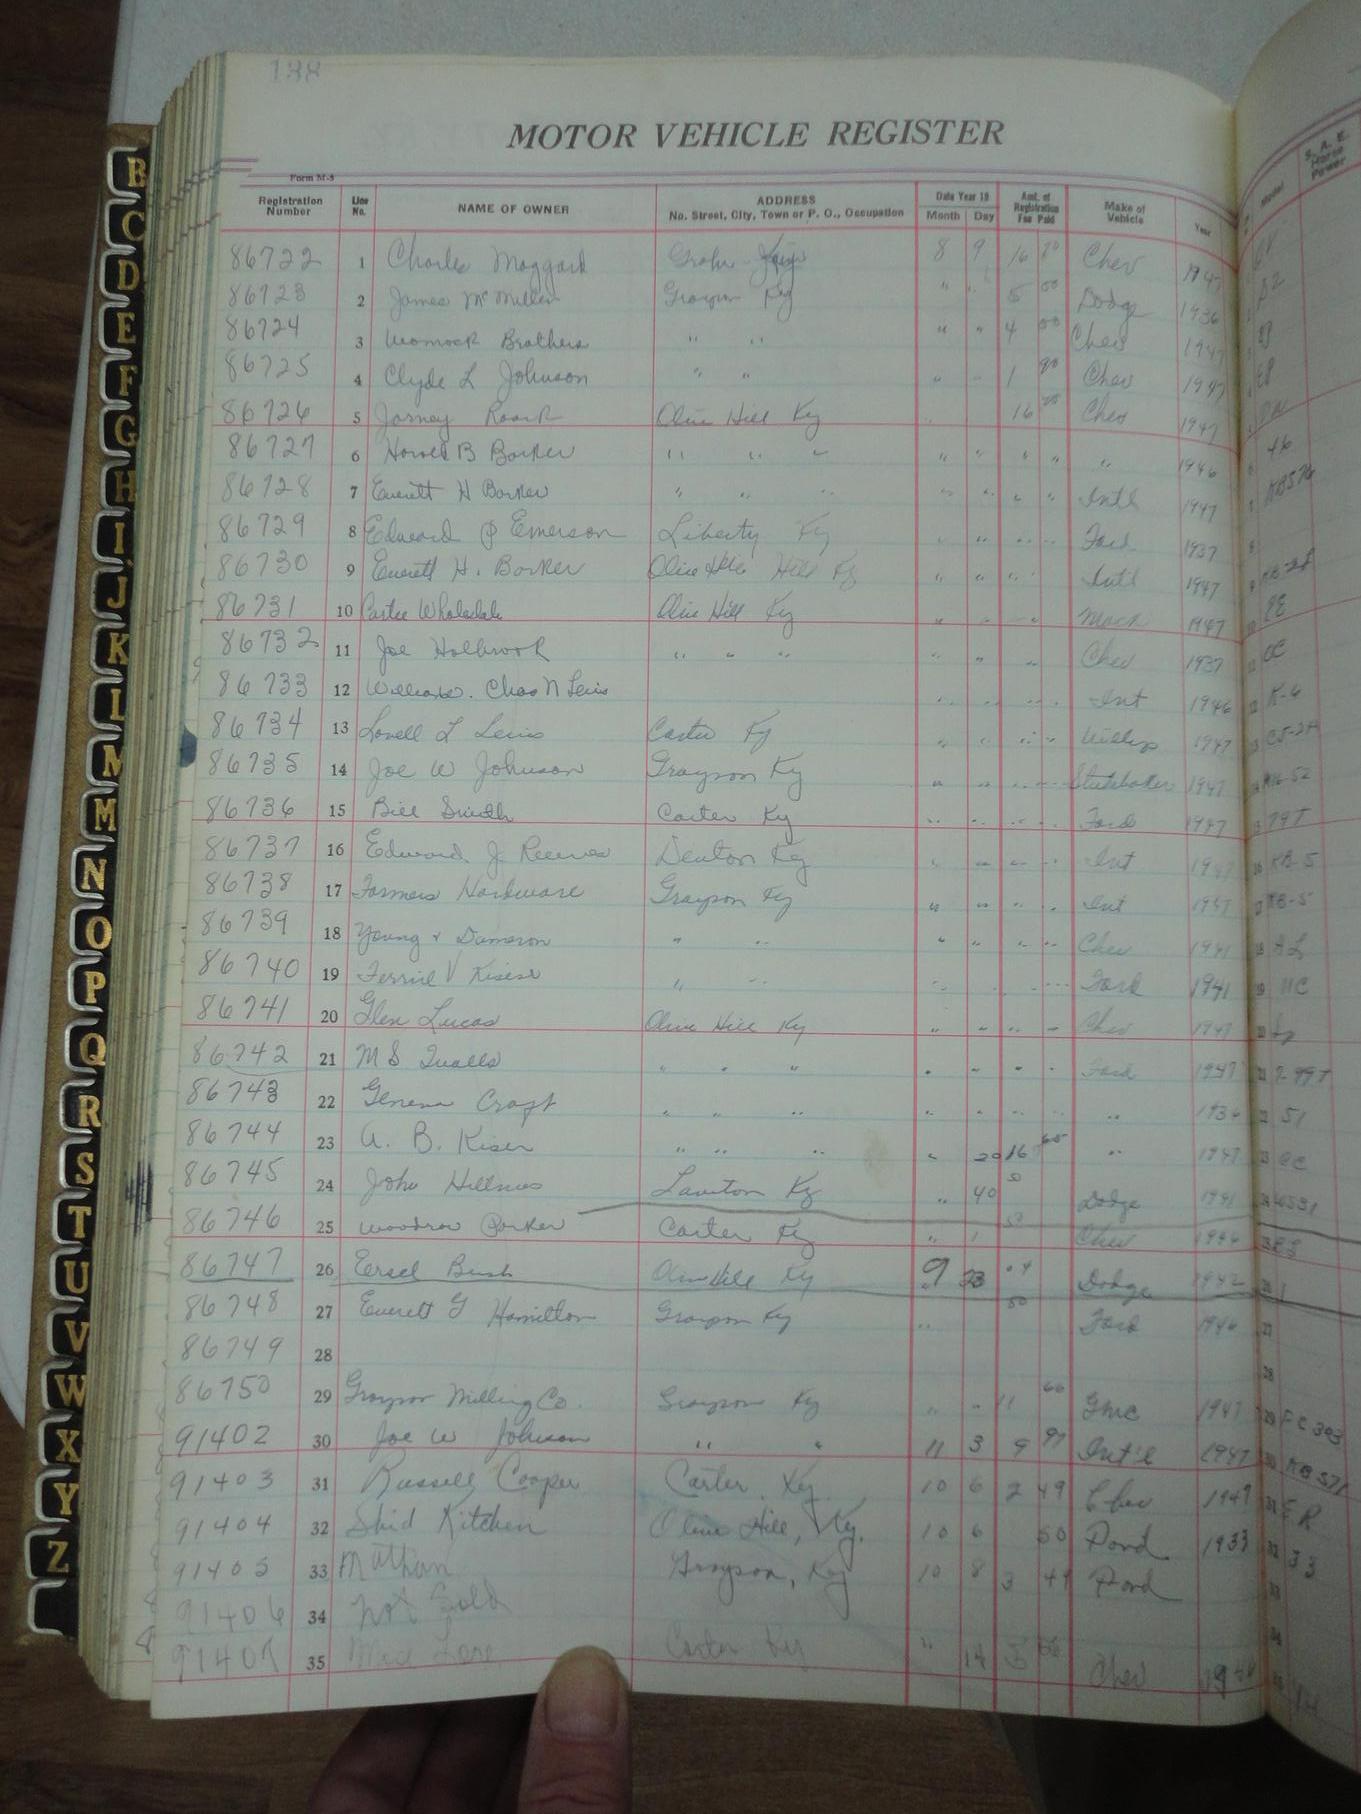 138
MOTOR VEHICLE REGISTER
Form M-5
Registration Number Line No. NAME OF OWNER ADDRESS No. Street, City, Town or P. O., Occupation Date Year 19 Month Day Amt. of Registration Fee Paid Make of Vehicle Year Model S. A. E. Horse Power
86722 1 Charles Maggard Grahn Ky 8 9 16 Chev 1947
86723 2 James McMillen Grayson Ky " " 5 00 Dodge 1936 D2
86724 3 Womack Brothers " " " " 4 Chev 1947 EJ
86725 4 Clyde L Johnson " " " 1 90 Chev 1947
86726 5 Roark Olive Hill Ky 16 Chev 1947
86727 6 Harold B Barker " " " " " " " " 1946
86728 7 Everett H Barker " " " " " " " Intl 1947
86729 8 Edward P Emerson Liberty Ky " " " Ford 1937
86730 9 Everett H. Barker Olive Hill Ky " " " Intl 1947
86731 10 Carter Wholesale Olive Hill Ky " " " Mack 1947 EE
86732 11 Joe Holbrook " " " " " " Chev 1937
86733 12 Chas N Lewis " " " Int 1946 K-6
86734 13 Lovell L Lewis Carter Ky " " " " Willys 1947 CJ-2A
86735 14 Joe W Johnson Grayson Ky " " " Studebaker 1947
86736 15 Bill Smith Carter Ky " " " " Ford 1947 79T
86737 16 Edward J Reeves Denton Ky " " " " Int 1947 KB-5
86738 17 Farmers Hardware Grayson Ky " " " " Int 1947 KB-5
86739 18 Young & Dameron " " " " " " Chev 1941 AL
86740 19 V Kiser " " " " " Ford 1941 11C
86741 20 Glen Lucas Olive Hill Ky " " " Chev 1947
86742 21 M S Qualls " " " " " " " Ford 1947
86743 22 Geneva Craft " " " " " " " " 1936 51
86744 23 A. B. Kiser " " " " 20 16 " 1947
86745 24 John Lawton Ky " 40 50 Dodge 1941
86746 25 Woodrow Parker Carter Ky " 1 50 Chev 1946
86747 26 Ersel Bush Olive Hill Ky 9 23 04 Dodge 1942
86748 27 Everett G Hamilton Grayson Ky " 50 Ford 1946
86749 28
86750 29 Grayson Milling Co. Grayson Ky " " 11 60 GMC 1947 FC 303
91402 30 Joe W Johnson " " 11 3 9 97 Int'l 1947
91403 31 Russell Cooper Carter Ky 10 6 2 49 Chev 1947
91404 32 Shid Kitchen Olive Hill, Ky. 10 6 50 Ford 1933 33
91405 33 Grayson, Ky 10 8 3 49 Ford
91406 34 Not Sold
91407 35 Carter Ky " 14 Chev
B
C
D
E
F
G
H
I
J
K
L
M
M
N
O
P
Q
R
S
T
U
V
W
X
Y
Z